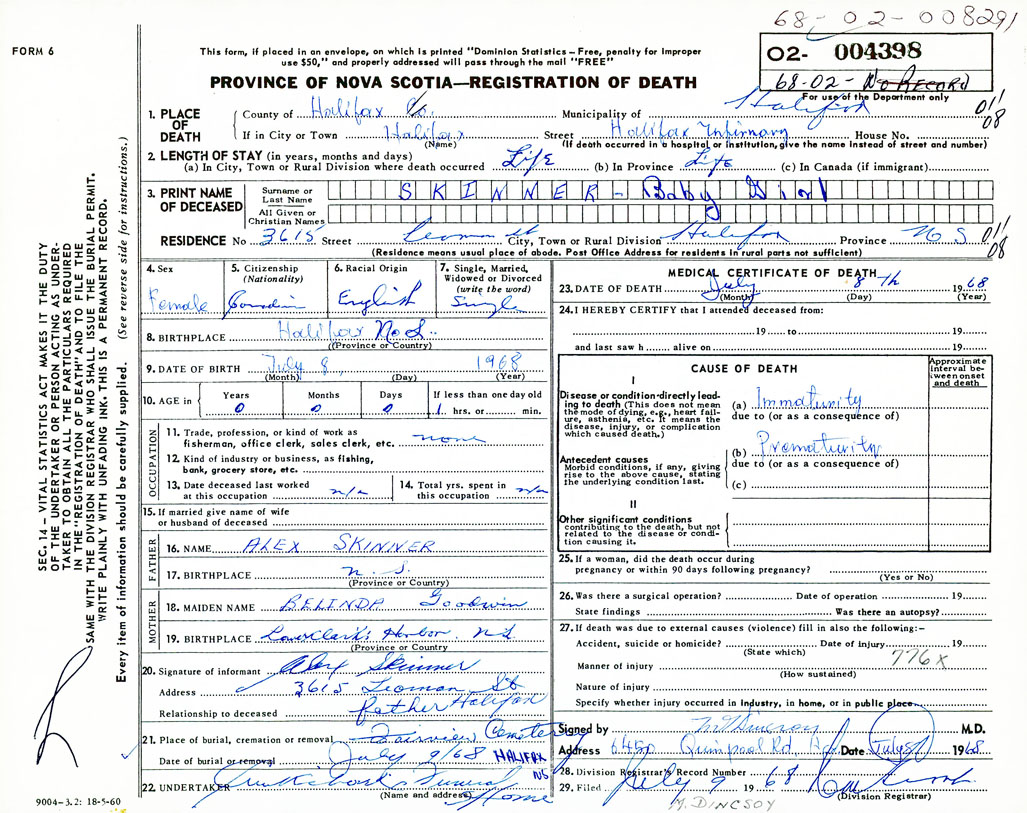 68-02-008291
FORM 6
This form, if placed in an envelope, on which is printed "Dominion Statistics – Free, penalty for improper
use $50," and properly addressed will pass through the mail "FREE"
02- 004398
PROVINCE OF NOVA SCOTIA—REGISTRATION OF DEATH
68-02- No RECORD
For use of the Department only
1. PLACE OF DEATH
County of Halifax Co. Municipality of Halifax 011
08
If in City or Town Halifax Street Halifax Infirmary House No.
(Name) (If death occurred in a hospital or institution, give the name instead of street and number)
2. LENGTH OF STAY (in years, months and days)
(a) In City, Town or Rural Division where death occurred Life (b) In Province Life (c) In Canada (if immigrant)
3. PRINT NAME OF DECEASED
Surname or Last Name SKINNER - Baby Girl
All Given or Christian Names
RESIDENCE No 3615 Street Leaman St City, Town or Rural Division Halifax Province N S 011
08
(Residence means usual place of abode. Post Office Address for residents in rural parts not sufficient)
4. Sex Female
5. Citizenship (Nationality) Canadian
6. Racial Origin English
7. Single, Married, Widowed or Divorced (write the word) Single
8. BIRTHPLACE Halifax N.S.
(Province or Country)
9. DATE OF BIRTH July 8, 1968
(Month) (Day) (Year)
10. AGE in Years 0 Months 0 Days 0 If less than one day old 1 hrs. or min.
OCCUPATION
11. Trade, profession, or kind of work as
fisherman, office clerk, sales clerk, etc. none
12. Kind of industry or business, as fishing,
bank, grocery store, etc.
13. Date deceased last worked
at this occupation n/a
14. Total yrs. spent in
this occupation n/a
15. If married give name of wife
or husband of deceased
FATHER
16. NAME ALEX SKINNER
17. BIRTHPLACE N. S.
(Province or Country)
MOTHER
18. MAIDEN NAME BELINDA Goodwin
19. BIRTHPLACE Lower Clark's Harbor. N.S
(Province or Country
20. Signature of informant Alex Skinner
Address 3615 Leaman St
Halifax
Relationship to deceased father
21. Place of burial, cremation or removal Fairview Cemetery
Date of burial or removal July 9/68 HALIFAX
NS
22. UNDERTAKER Cruikshank's Funeral
Home
(Name and address)
9004-3.2: 18-5-60
MEDICAL CERTIFICATE OF DEATH
23. DATE OF DEATH July 8th 1968
(Month) (Day) (Year)
24. I HEREBY CERTIFY that I attended deceased from:
19 to 19
and last saw h alive on 19
CAUSE OF DEATH
Approximate Interval between onset and death
I
Disease or condition directly leading to death (This does not mean the mode of dying, e.g., heart failure, asthenia, etc. It means the disease, injury, or complication which caused death.)
(a) Immaturity
due to (or as a consequence of)
Antecedent causes
Morbid conditions, if any, giving rise to the above cause, stating the underlying condition last.
(b) Prematurity
due to (or as a consequence of)
(c)
II
Other significant conditions
contributing to the death, but not related to the disease or condition causing it.
25. If a woman, did the death occur during
pregnancy or within 90 days following pregnancy?
(Yes or No)
26. Was there a surgical operation? Date of operation 19
State findings Was there an autopsy?
27. If death was due to external causes (violence) fill in also the following:–
Accident, suicide or homicide? Date of injury 19
(State which)
776X
Manner of injury
(How sustained)
Nature of injury
Specify whether injury occurred in industry, in home, or in public place
Signed by M Dincsoy M.D.
Address 6450 Quinpool Rd. Date July 8 1968
28. Division Registrar's Record Number
29. Filed July 9 1968
(Division Registrar)
M. DINCSOY
SEC. 14 – VITAL STATISTICS ACT MAKES IT THE DUTY
OF THE UNDERTAKER OR PERSON ACTING AS UNDER-
TAKER TO OBTAIN ALL THE PARTICULARS REQUIRED
IN THE "REGISTRATION OF DEATH" AND TO FILE THE
SAME WITH THE DIVISION REGISTRAR WHO SHALL ISSUE THE BURIAL PERMIT.
WRITE PLAINLY WITH UNFADING INK. THIS IS A PERMANENT RECORD.
Every item of information should be carefully supplied. (See reverse side for instructions.)